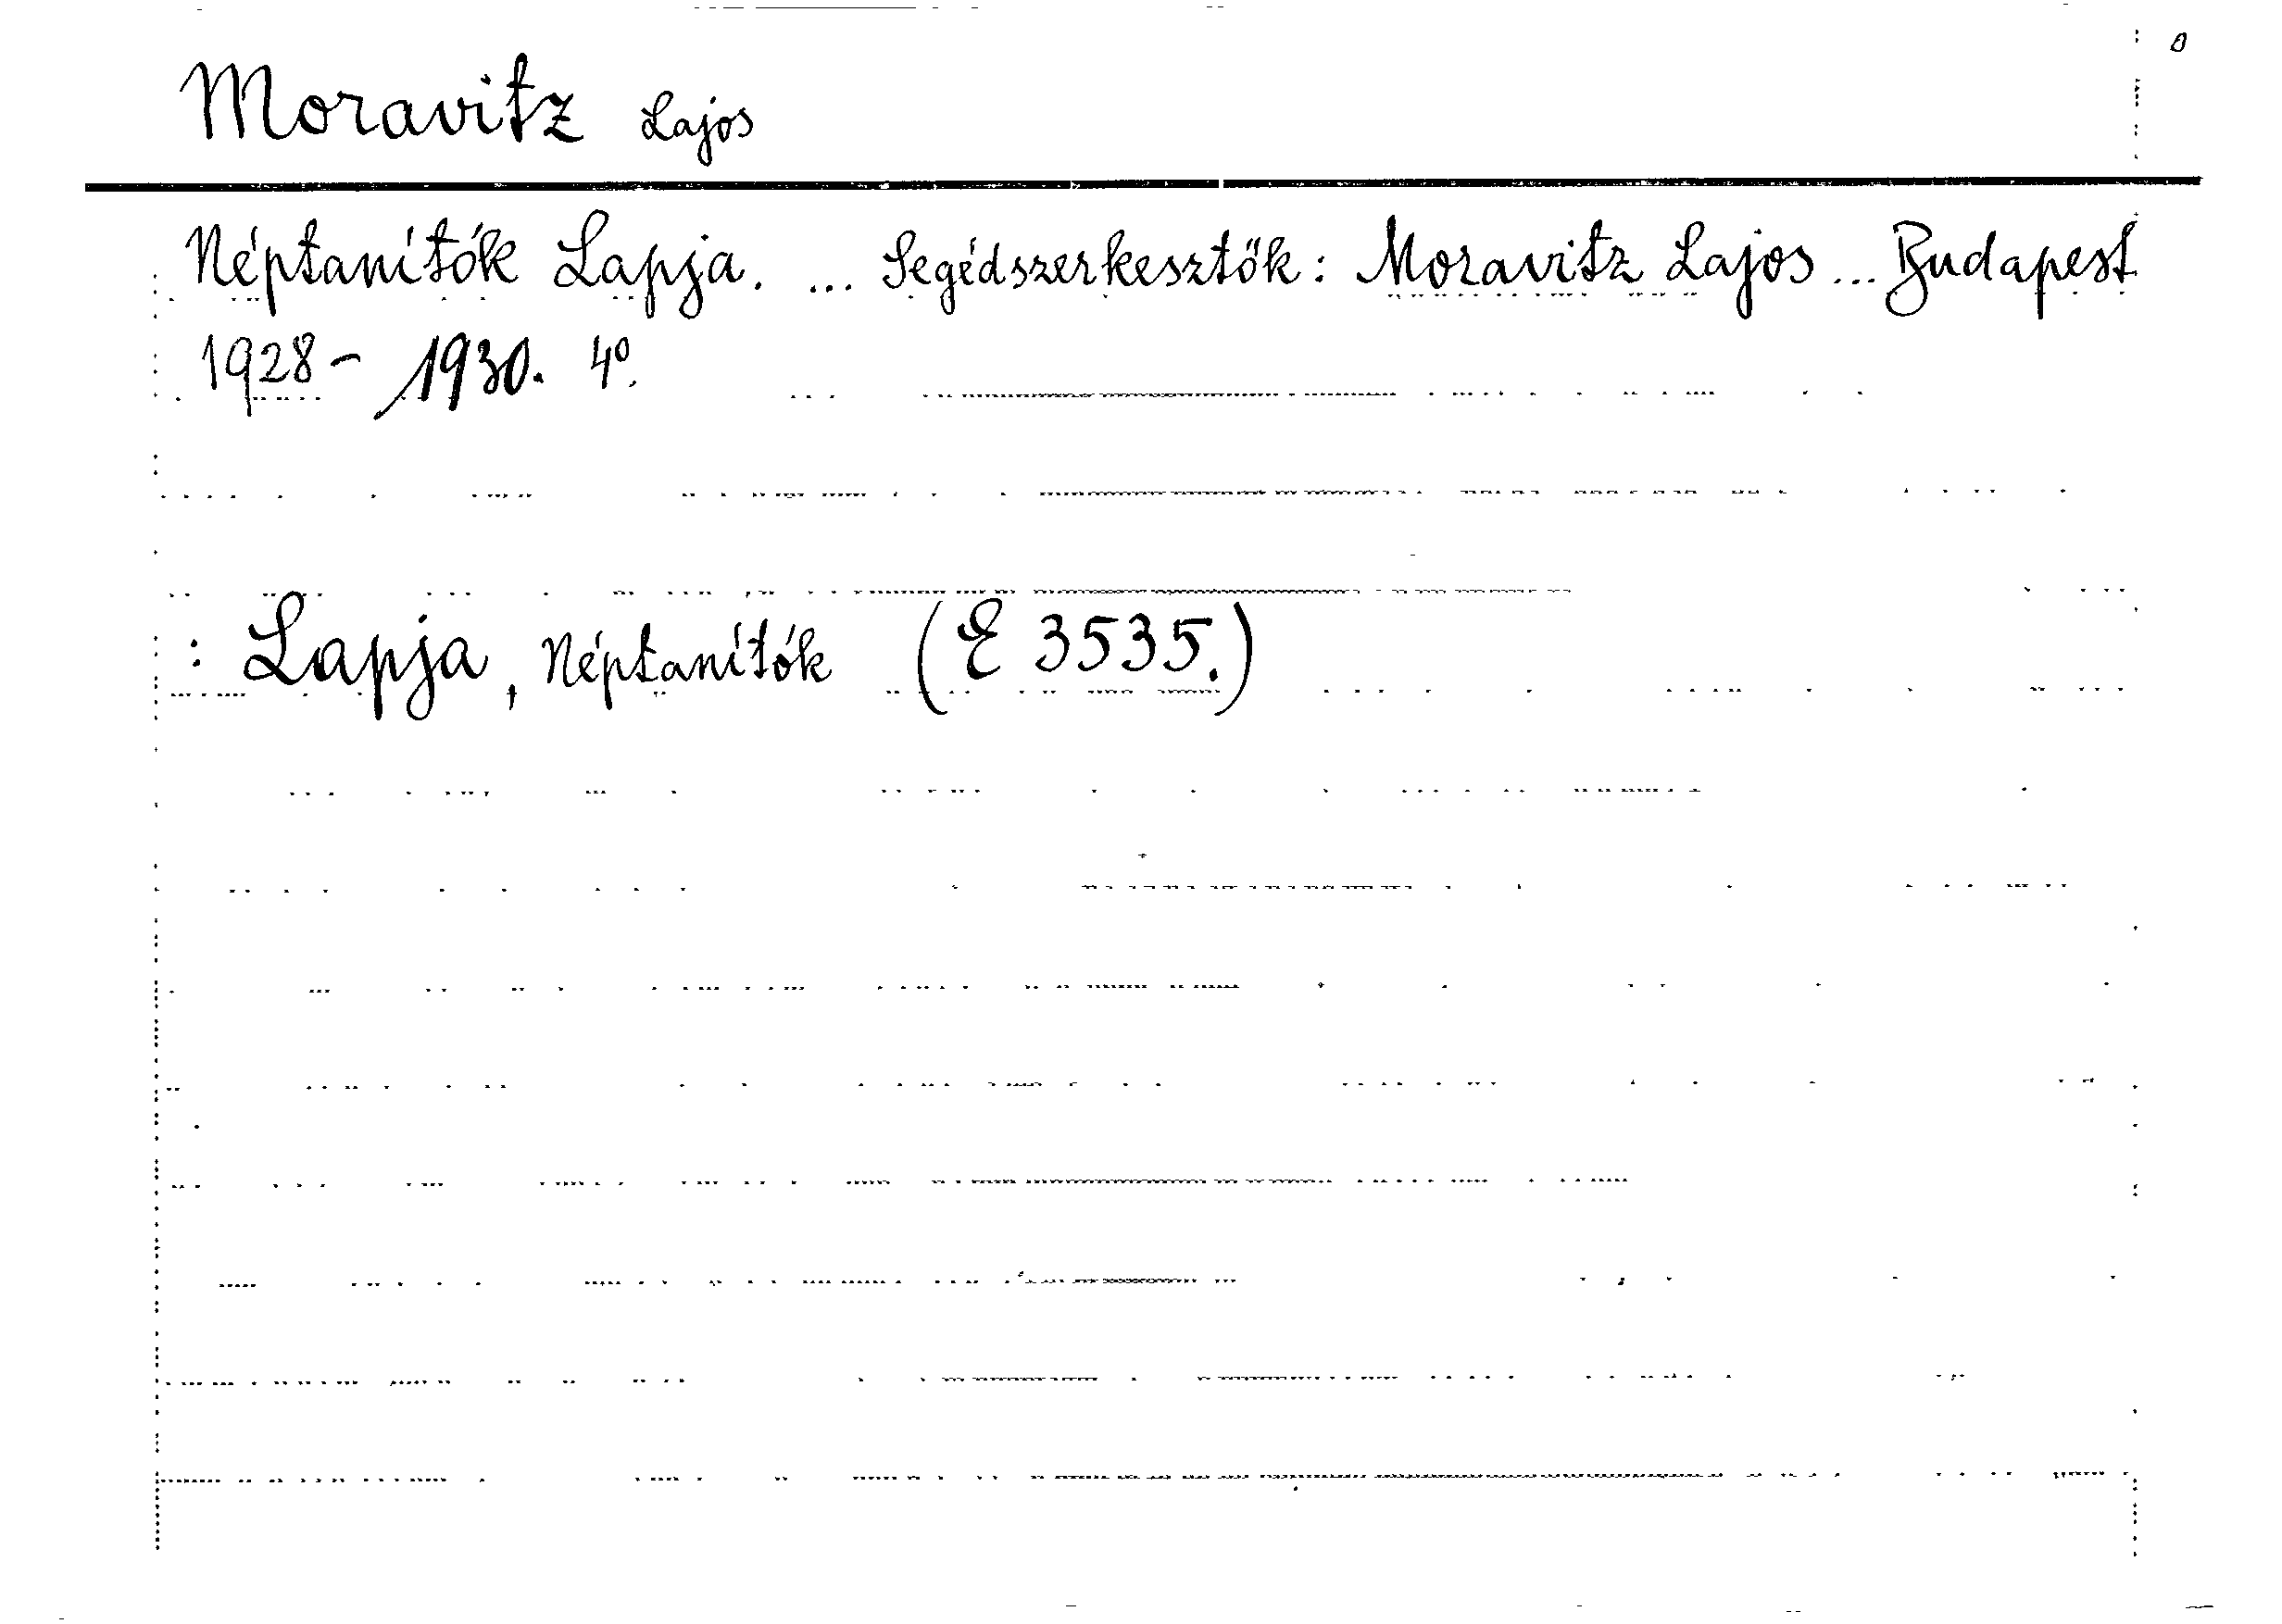 Moravitz Lajos
Néptanítók Lapja. ... Segédszerkesztők: Moravitz Lajos ... Budapest
1928 - 1930. 4°.
: Lapja, Néptanítók (E 3535.)